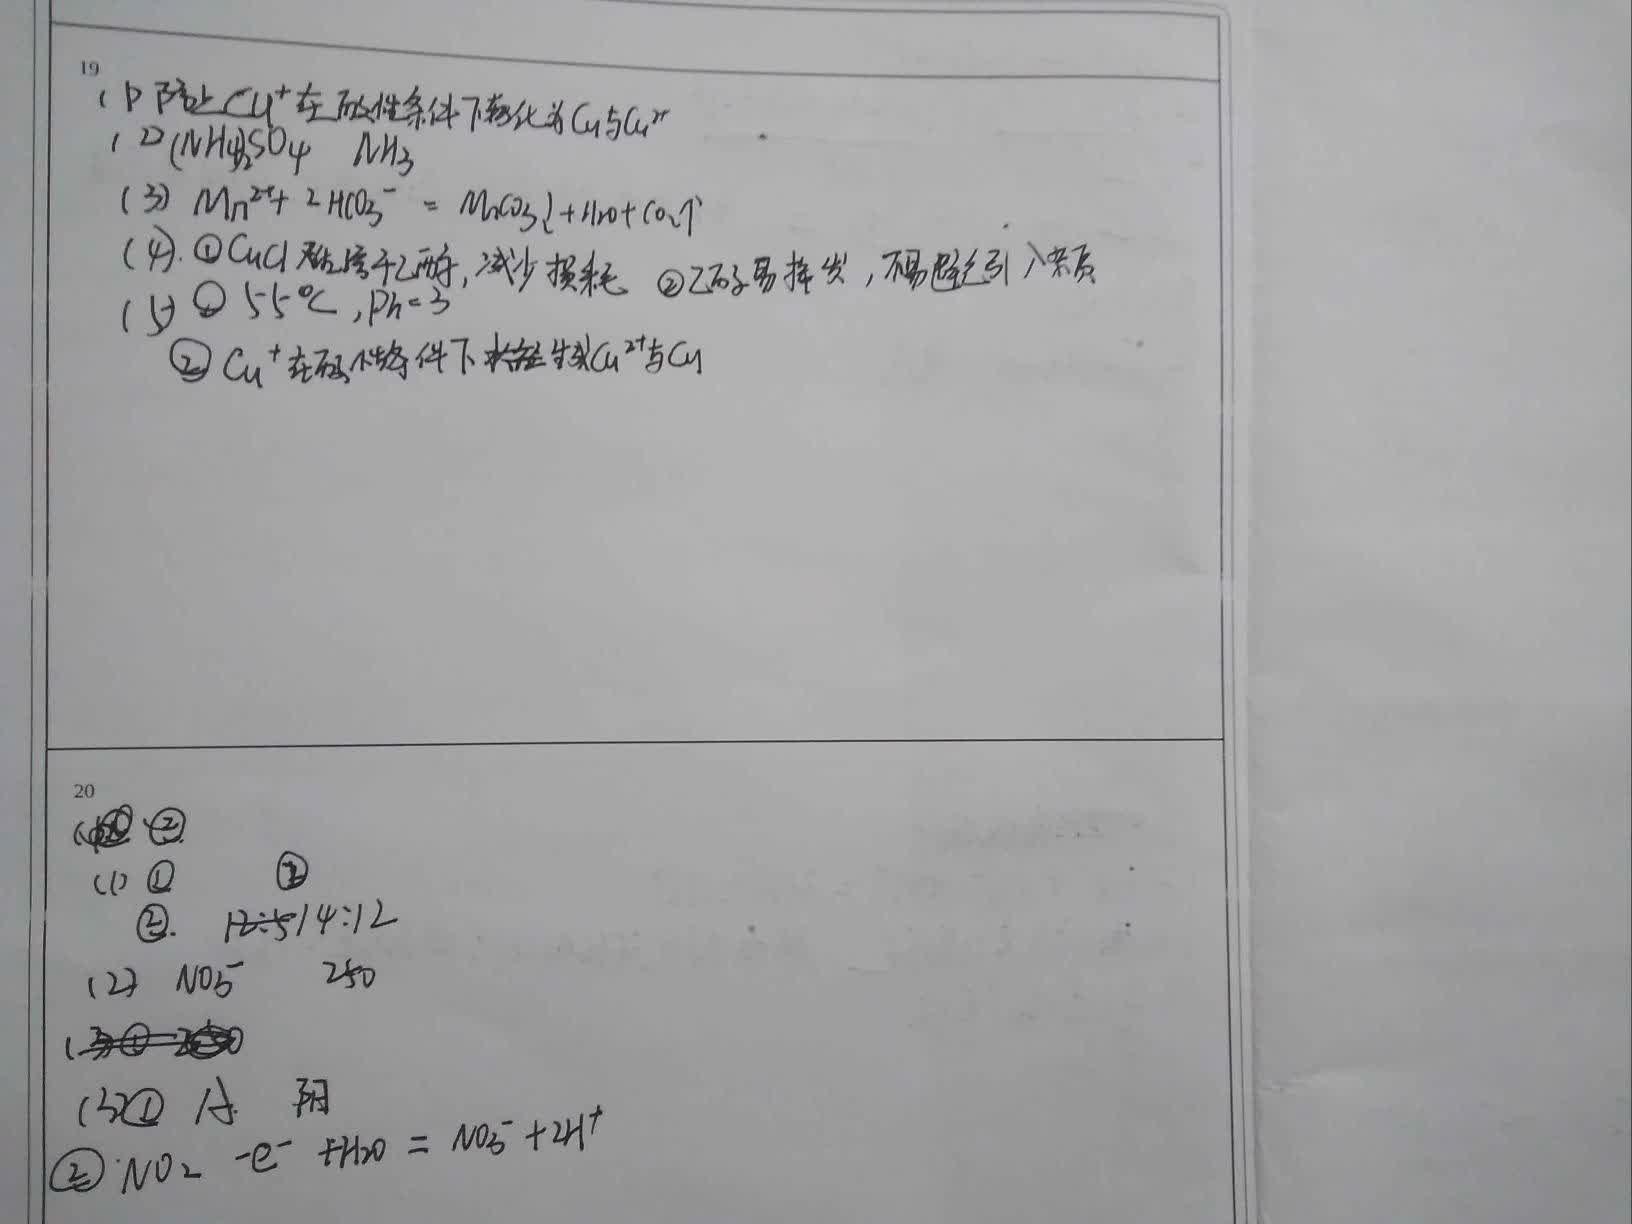 19
(1) 防止Cu⁺在酸性条件下转化为Cu与Cu²⁺
(2) (NH4)2SO4 NH3
(3) Mn²⁺ + 2HCO3⁻ = MnCO3↓ + H2O + CO2↑
(4). ①CuCl难溶于乙醇, 减少损耗 ②乙醇易挥发, 不易引入杂质
(5) ① 55℃, Ph=3
② Cu⁺在酸性条件下生成Cu²⁺与Cu
20
②
(1) ① ②
②. 14:12
(2) NO3⁻ 250
(3)① A. 阴
② NO2 -e⁻ +H2O = NO3⁻ + 2H⁺